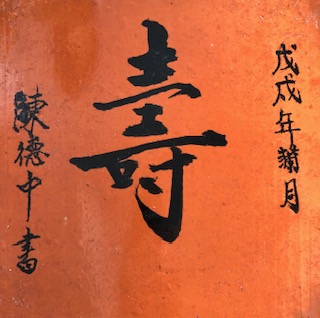 戊戌年蘭月
壽
陳德中書